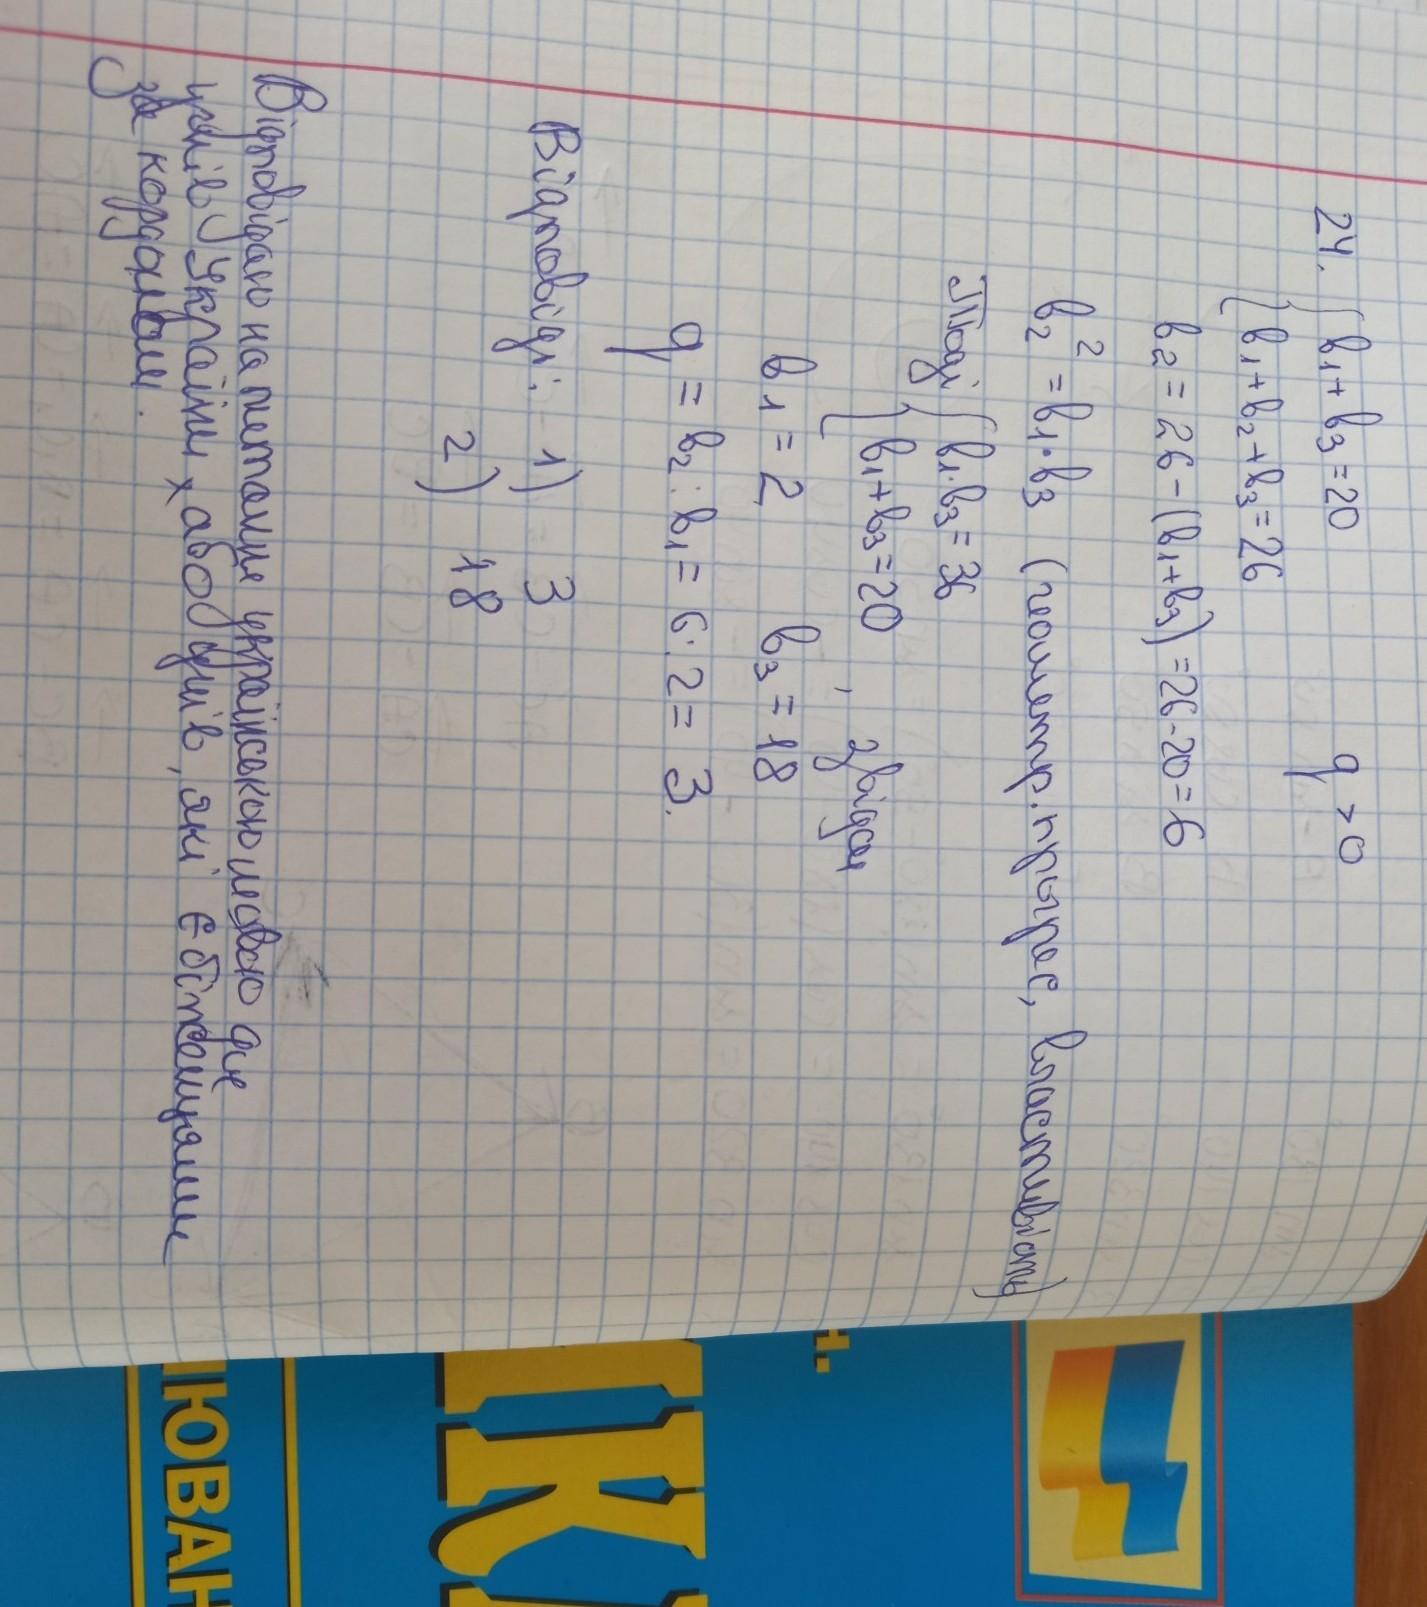 24. { b₁ + b₃ = 20 q > 0
{ b₁ + b₂ + b₃ = 26
b₂ = 26 - (b₁ + b₃) = 26 - 20 = 6
b₂² = b₁ · b₃ (геометр. прогрес, властивість)
Тоді { b₁ · b₃ = 36
{ b₁ + b₃ = 20 , звідси
b₁ = 2 b₃ = 18
q = b₂ : b₁ = 6 : 2 = 3.
Відповіді: 1) 3
2) 18
Відповідаю на питання українською мовою для
учнів України, або учнів, які є біженцями
за кордоном.
н.
К
ЮВАН